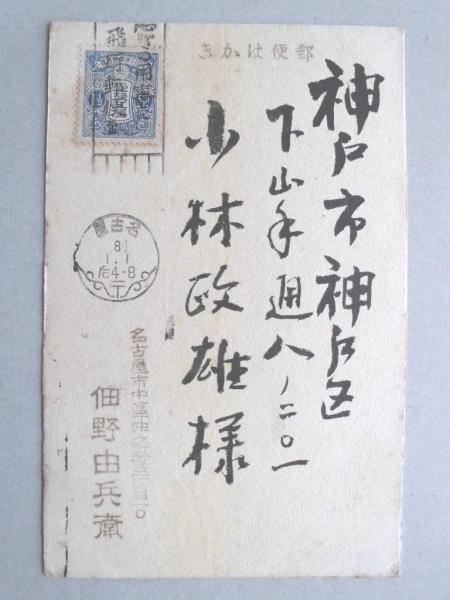 郵便はかき
神戸市神戸区
下山手通八ノ二〇一
小林政雄様
名古屋
8
1.1
后4-8
名古屋市中區
佃野由兵衛